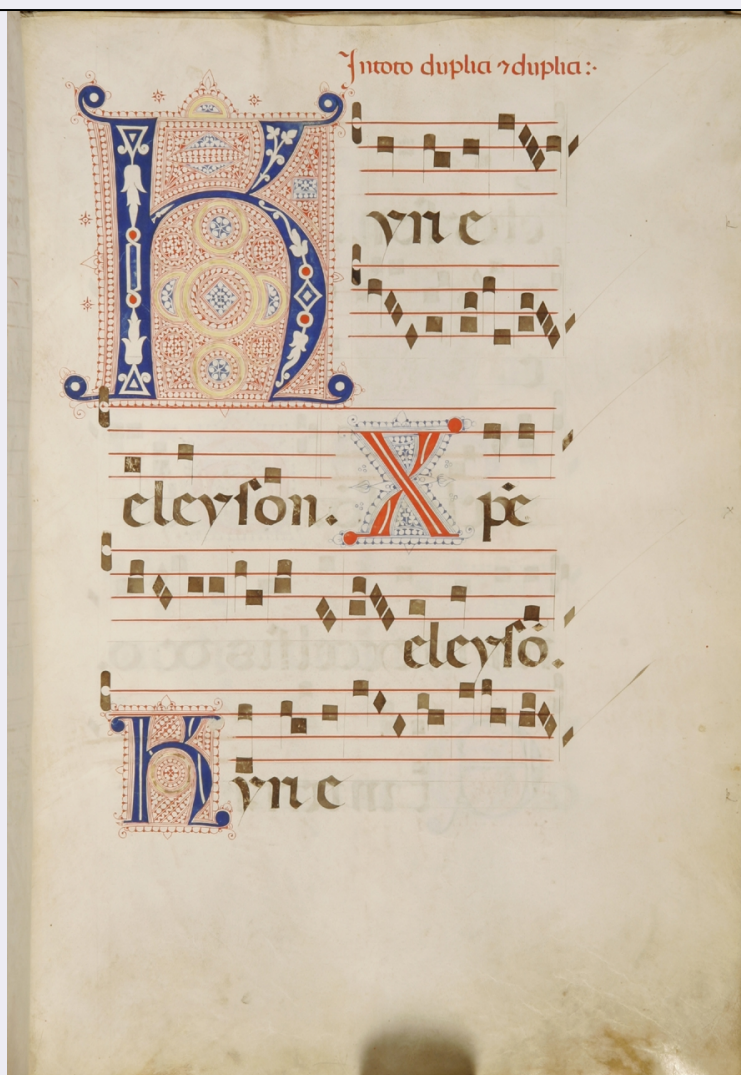 Intoto duplici ⁊ duplici:·
Kyrie
eleyſon. Xp̄e
eleyſō.
Kyrie